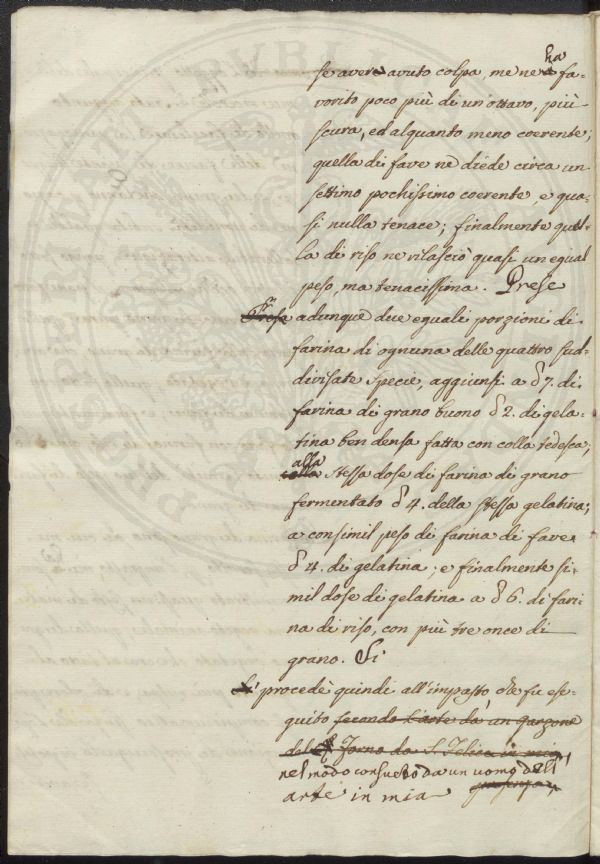 ha
se avere avuto colpa, me ne ha fa-
vorito poco più di un'ottavo, più
scura, ed alquanto meno coerente;
quella di fave ne diede circa un
settimo pochissimo coerente, e qua-
si nulla tenace; finalmente quel-
la di riso ne rilasciò quasi un egual
peso, ma tenacissima. Prese
Prese adunque due eguali porzioni di
farina di ognuna delle quattro sud-
divisate specie, aggiunsi a 7. di
farina di grano buono 2. di gela-
tina ben densa fatta con colla tedesca;
alla
colla stessa dose di farina di grano
fermentato 4. della stessa gelatina;
a consimil peso di farina di fave
4. di gelatina; e finalmente si-
mil dose di gelatina a 6. di fari-
na di riso, con più tre once di
grano. Si
Si procedè quindi all'impasto, che fu ese-
guito secondo l'arte da un garzone
del Forno da S. Felice in mia
nel modo consueto da un uomo dell'
arte in mia presenza,